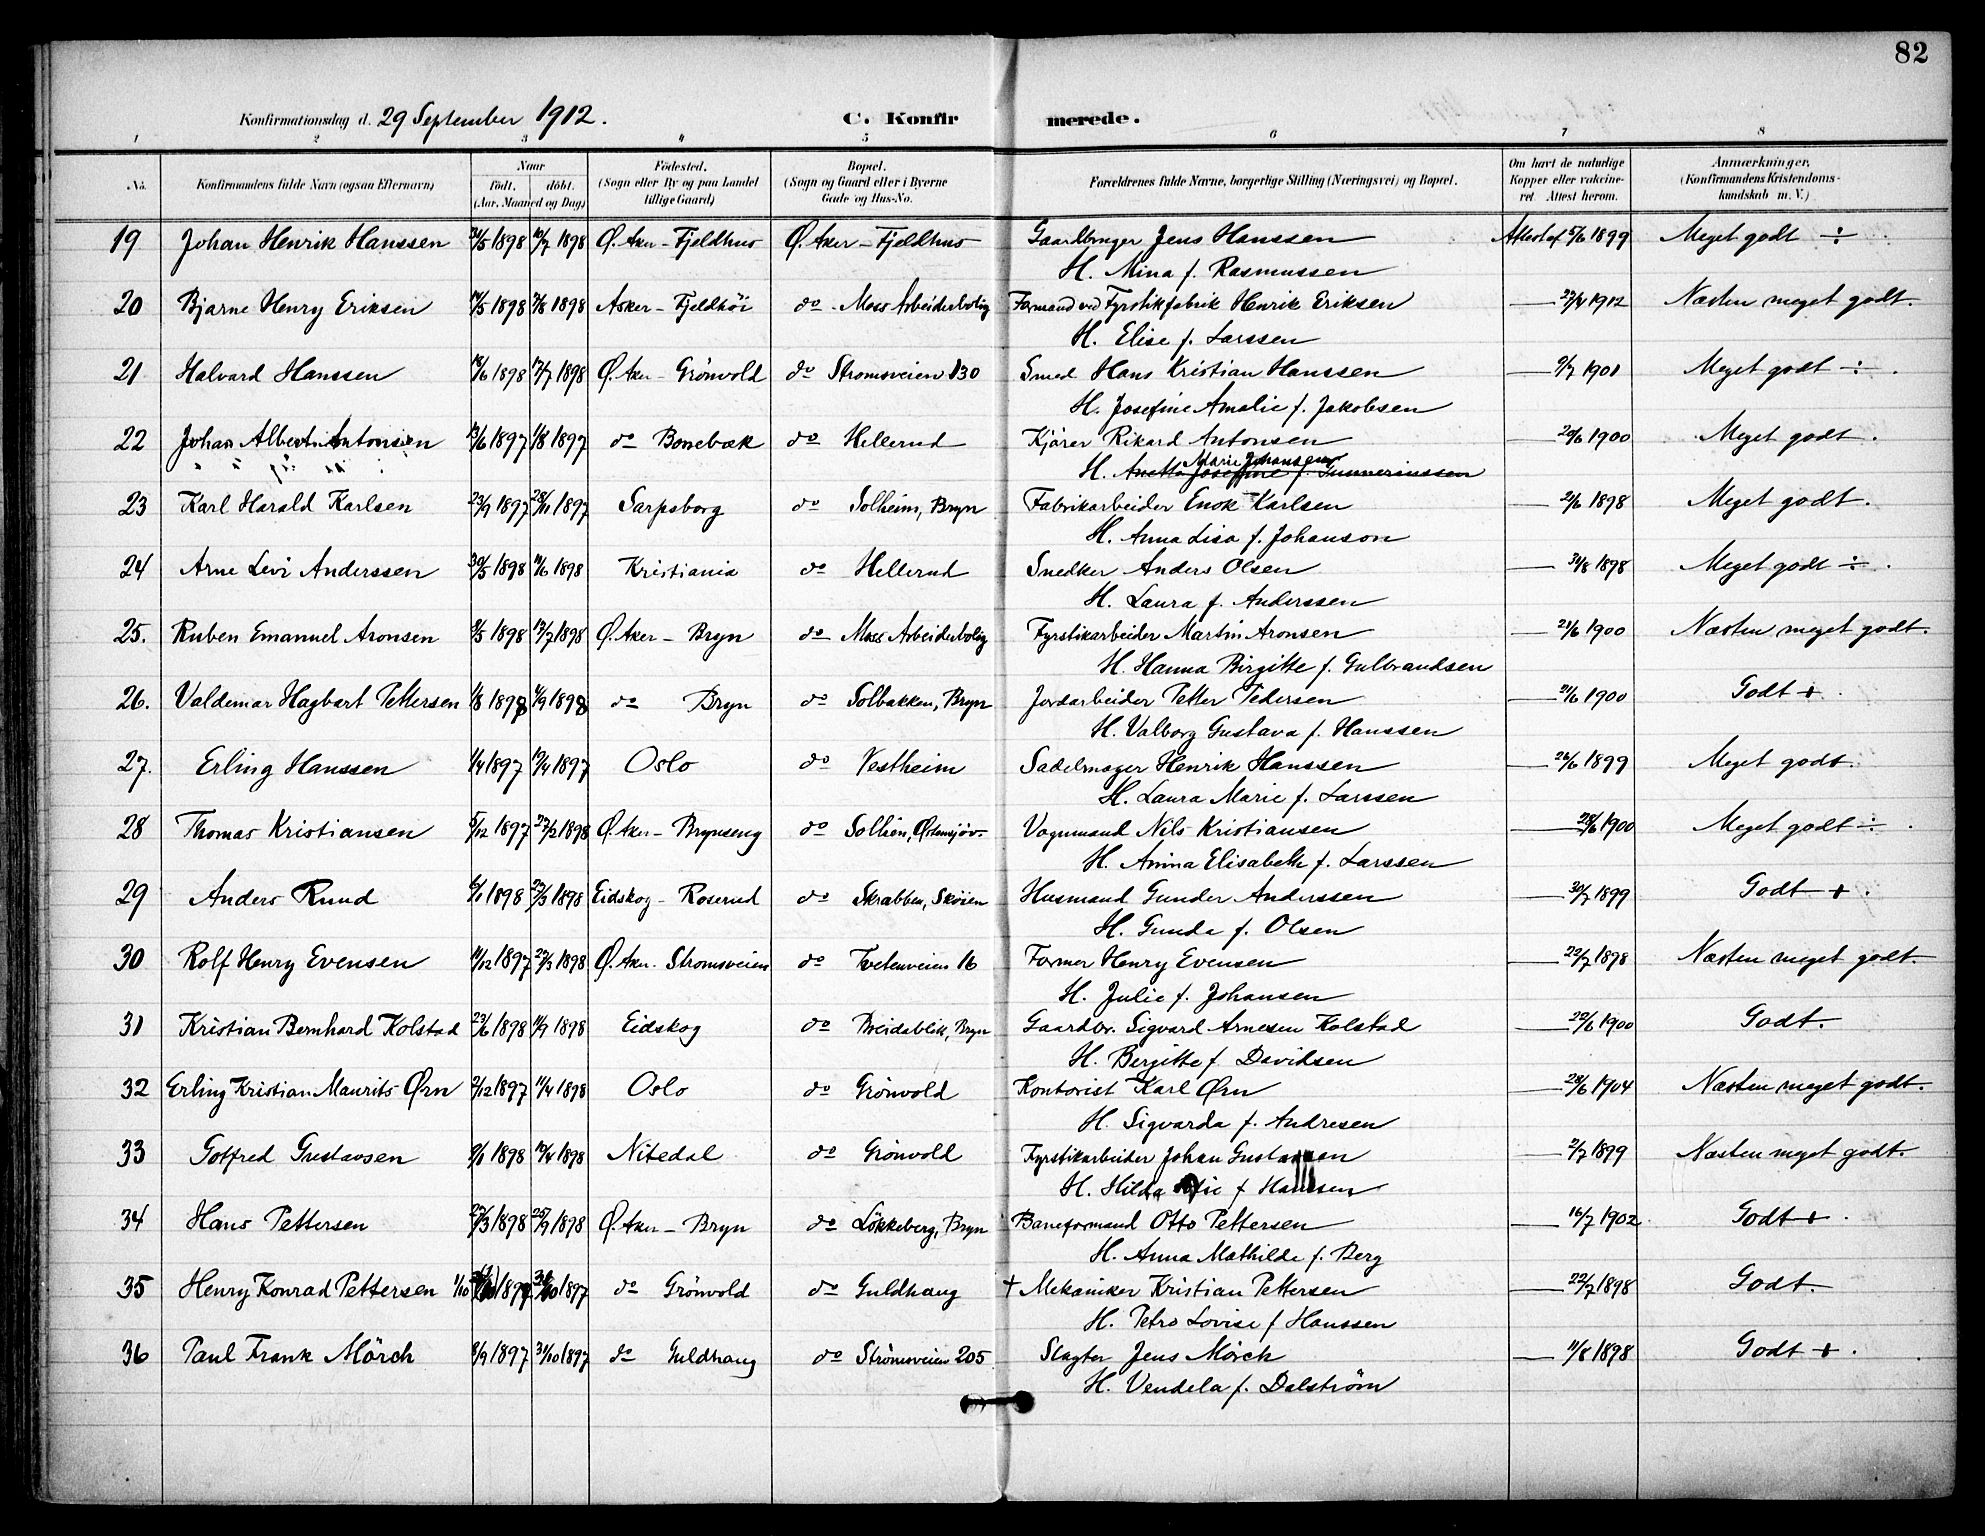 82
Konfirmationsdag d. 29 September 1912. C. Konfirmerede.
1 2 3 4 5 6 7 8
No. Konfirmandens fulde Navn (ogsaa Efternavn) Naar födt. döbt. (Aar, Maaned og Dag) Födested. (Sogn eller By og paa Landet tillige Gaard) Bopæl. (Sogn og Gaard eller i Byerne Gade og Hus-No. Forældrenes fulde Navne, borgerlige Stilling (Næringsvei) og Bopæl. Om havt de naturlige Kopper eller vakcineret. Attest herom. Anmærkninger. (Konfirmandens Kristendomskundskab m. V.)
19 Johan Henrik Hanssen /5 1898 /7 1898 Ø. Aker - Fjeldhus Ø. Aker - Fjeldhus Gaardbruger Jens Hanssen Attest af 5/6 1899 Meget godt ÷
H. Mina f. Rasmussen
20 Bjarne Henry Eriksen /5 1898 /8 1898 Asker - Fjeldhöi do - Moss Arbeiderbolig Formand ved Fyrstikfabrik Henrik Eriksen — /4 1912 Næsten meget godt.
H. Elise f. Larssen
21 Halvard Hanssen 18/6 1898 17/7 1898 Ø. Aker - Grönvold do Stromsveien 130 Smed Hans Kristian Hanssen — 9/7 1901 Meget godt ÷.
H. Josefine Amalie f. Jakobsen
22 Johan Albert Antonsen /6 1897 1/8 1897 do Bonebæk do Hellerud Kjörer Rikard Antonsen — 20/6 1900 Meget godt.
H. Anette Josefine f. Gunnerinssen Marie Johansen
23 Karl Harald Karlsen 23/9 1897 28/11 1897 Sarpsborg do Solheim, Bryn Fabrikarbeider Enok Karlsen — 2/6 1898 Meget godt.
H. Anna Lisa f. Johanson
24 Arne Levi Anderssen 30/5 1898 19/6 1898 Kristiania do Hellerud Snedker Anders Olsen — 31/8 1898 Meget godt ÷.
H. Laura f. Anderssen
25. Ruben Emanuel Aronsen 9/5 1898 17/7 1898 Ø. Aker - Bryn do - Moss Arbeiderbolig Fyrstikarbeider Martin Aronsen — 21/6 1900 Næsten meget godt.
H. Hanna Birgitte f. Gulbrandsen
26. Valdemar Hagbart Pettersen 1/8 1898 4/9 1898 do Bryn do Solbakken, Bryn Jordarbeider Petter Pedersen — 21/6 1900 Godt +.
H. Valborg Gustava f. Hanssen
27. Erling Hanssen 1/4 1897 19/4 1897 Oslo do Vestheim Sadelmager Henrik Hanssen — 26/6 1899 Meget godt.
H. Laura Marie f. Larssen
28 Thomas Kristiansen 5/12 1897 27/2 1898 Ø. Aker - Brynseng do Solhien, Østensjöv. Vognmand Nils Kristiansen — 28/6 1900 Meget godt ÷.
H. Anna Elisabeth f. Larssen
29 Anders Rund 6/1 1898 27/3 1898 Eidskog - Roserud do Skrabben, Sköien Husmand Gunder Anderssen — 30/7 1899 Godt +.
H. Gunda f. Olsen
30 Rolf Henry Evensen 14/12 1897 27/3 1898 Ø. Aker. Stromsveien do Tvetenveien 16 Former Henry Evensen — 22/7 1898 Næsten meget godt.
H. Julie f. Johansen
31 Kristian Bernhard Kolstad 23/6 1898 11/9 1898 Eidskog do Breidablik, Bryn Gaardbr. Sigvard Arnesen Kolstad — 22/6 1900 Godt.
H. Bergitte f. Davidsen
32 Erling Kristian Maurits Ørn 2/12 1897 11/4 1898 Oslo do Grönvold Kontorist Karl Ørn — 28/6 1904 Næsten meget godt.
H. Sigvarda f. Andresen
33 Gotfred Gustavsen 9/1 1898 10/4 1898 Nitedal do Grönvold Fyrstikarbeider Johan Gustavsen — 2/7 1899 Næsten meget godt.
H. Hilda f Hanssen
34 Hans Pettersen 27/3 1898 25/9 1898 Ø. Aker - Bryn do Lökkeberg, Bryn Baneformand Otto Pettersen — 16/7 1902 Godt +.
H. Anna Mathilde f. Berg
35 Henry Konrad Pettersen 1/10 1897 31/10 1897 do Grönvold do Guldhaug † Mekaniker Kristian Pettersen — 22/7 1898 Godt.
H. Petra Lovise f Hanssen
36 Paul Frank Mörch 8/9 1897 31/10 1897 do Guldhaug do Strömsveien 205 Slagter Jens Mörch — 11/8 1898 Godt +.
H. Vendela f. Dalström